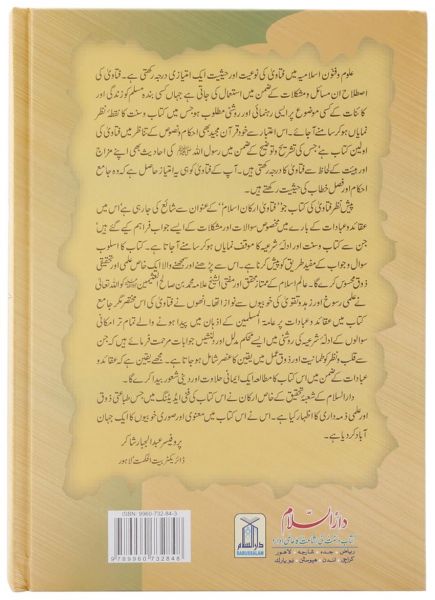 علوم و فنون اسلامیہ میں فتاویٰ کی نوعیت اور حیثیت ایک امتیازی درجہ رکھتی ہے۔ فتاویٰ کی
اصطلاح ان مسائل و مشکلات کے ضمن میں استعمال کی جاتی ہے جہاں کسی بندہ مسلم کو زندگی اور
کائنات کے کسی موضوع پر ایسی رہنمائی اور روشنی مطلوب ہو جس میں کتاب و سنت کا نقطۂ نظر
نمایاں ہو کر سامنے آ جائے۔ اس اعتبار سے خود قرآن مجید بھی احکام و نصوص کے تناظر میں فتاویٰ کی
اولین کتاب ہے جس کی تشریح و توضیح کے ضمن میں رسول اللہ ﷺ کی احادیث بھی اپنے مزاج
اور ہیئت کے لحاظ سے فتاویٰ کا درجہ رکھتی ہیں۔ آپ کے فتاویٰ کو ہی یہ امتیاز حاصل ہے کہ وہ جامع
احکام اور فصل خطاب کی حیثیت رکھتے ہیں۔
پیش نظر فتاویٰ کی کتاب جو ”فتاویٰ ارکان اسلام“ کے عنوان سے شائع کی جا رہی ہے اس میں
عقائد و عبادات کے بارے میں مخصوص سوالات اور مسائل کے ایسے جواب فراہم کیے گئے ہیں
جن سے کتاب و سنت اور ادلۂ شرعیہ کا موقف نمایاں ہو کر سامنے آ جاتا ہے۔ کتاب کا اسلوب
سوال و جواب کے مفید طریق کو پیش کرتا ہے۔ اس سے پڑھنے اور سمجھنے والا ایک خاص علمی اور تحقیقی
ذوق محسوس کرے گا۔ عالم اسلام کے ممتاز محقق اور مفتی الشیخ علامہ محمد بن صالح العثیمین کو اللہ تعالیٰ
نے علمی رسوخ اور زہد و تقویٰ کی خوبیوں سے نوازا تھا۔ انھوں نے فتاویٰ کی اس مختصر مگر جامع
کتاب میں عقائد و عبادات پر عامۃ المسلمین کے اذہان میں پیدا ہونے والے تمام تر امکانی
سوالوں کے ادلۂ شرعیہ کی روشنی میں ایسے محکم مدلل اور دلنشیں جوابات مرحمت فرمائے ہیں کہ جن
سے قلب و نظر کو طمانیت اور ذوق عمل میں یقین کا عنصر شامل ہو جاتا ہے۔ مجھے یقین ہے کہ عقائد و
عبادات کے ضمن میں اس کتاب کا مطالعہ ایک ایمانی حلاوت اور دینی شعور پیدا کرے گا۔
دار السلام کے شعبۂ تحقیق کے خاص ارکان نے اس کتاب کی فنی ایڈیٹنگ میں جس طباعتی ذوق
اور علمی ذمہ داری کا اظہار کیا ہے۔ اس نے اس کتاب میں معنوی اور صوری خوبیوں کا ایک جہان
آباد کر دیا ہے۔
پروفیسر عبد الجبار شاکر
ڈائریکٹر بیت الحکمت لاہور
ISBN: 9960-732-84-3
9 789960 732848
دار السلام
DARUSSALAM
دار السلام
کتاب و سنت کی اشاعت کا عالمی ادارہ
ریاض جدہ شارجہ لاہور
کراچی لندن ہیوسٹن نیویارک